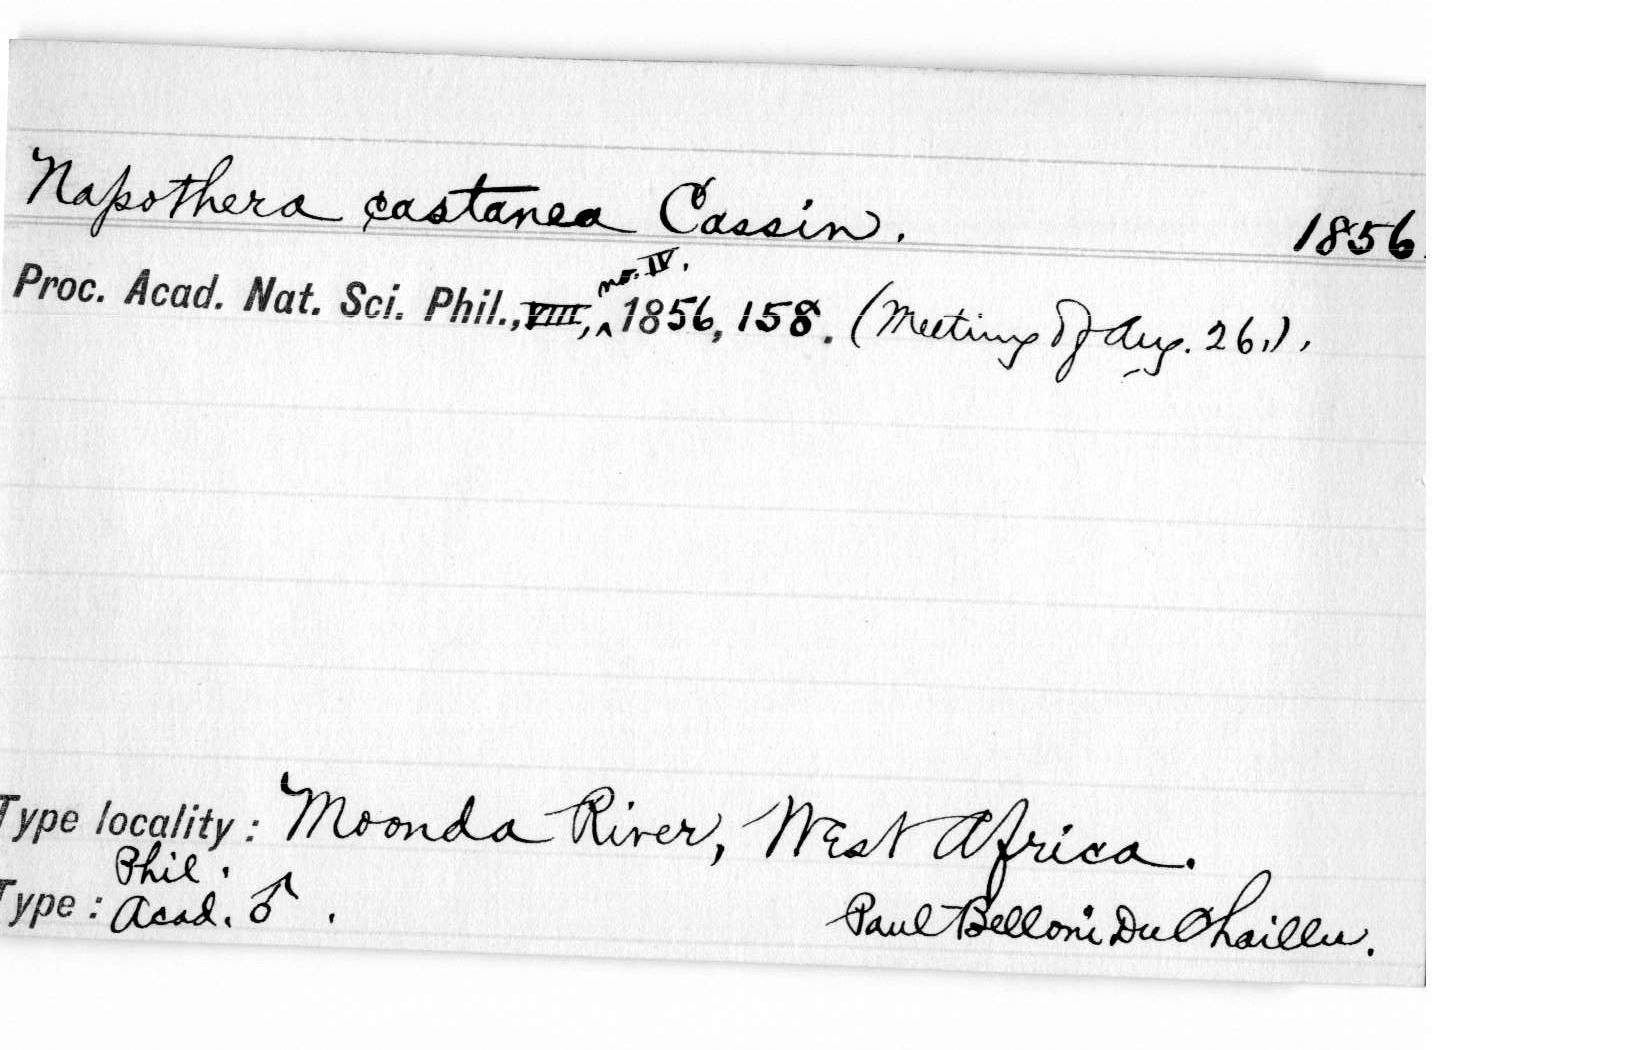 Napothera castanea Cassin. 1856.
Proc. Acad. Nat. Sci. Phil., VIII, no. IV. 1856, 158. (Meeting of Aug. 26.).
Type locality: Moonda River, West Africa.
Phil.
Type: Acad. ♂. Paul Belloni Du Chaillu.